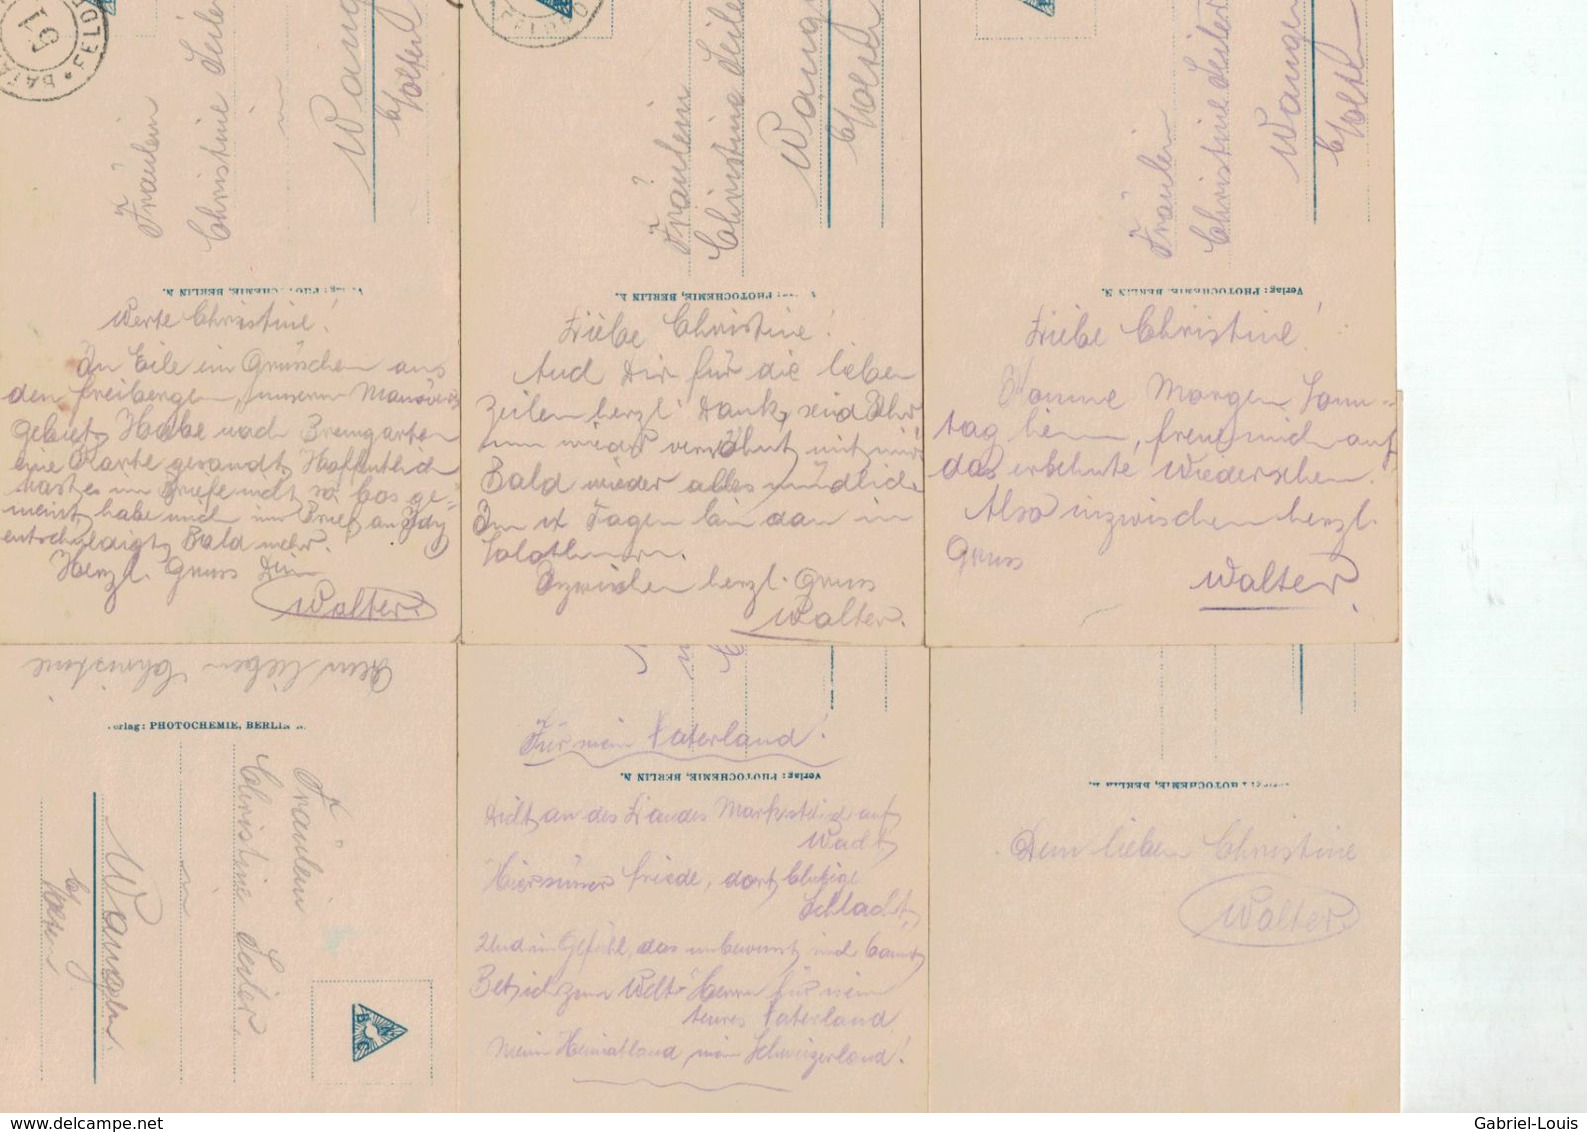 Fräulein
Christine Seiler
in
Wangen
b/Olten
Verlag: PHOTOCHEMIE, BERLIN N.
Werte Christine!
In Eile ein Grüschen aus
den Freibergen, unserm Manöver
gebiet, Habe nach Bremgarten
eine Karte gesandt, Hoffentlich
hast es im Briefe nicht so bös ge-
meint, habe mich im Brief an Idy
entschuldigt, Bald mehr.
Herzl. Gruss Dein
Walter
Fräulein
Christine Seiler
Wangen
b/Olten
PHOTOCHEMIE, BERLIN N.
Liebe Christine!
Auch Dir für die lieben
Zeilen herzl. Dank, sind Ihr
nun wieder versöhnt mit mir
Bald wieder alles mündlich
In 14 Tagen bin dan in
Solothurn.
Inzwischen herzl. Gruss
Walter.
Fräulein
Christine Seiler
Wangen
b/Olten
Verlag: PHOTOCHEMIE, BERLIN N.
Liebe Christine!
Komme Morgen Sonn-
tag heim, freue mich auf
das ersehnte Wiedersehen.
Also inzwischen herzl.
Gruss
Walter.
Dem lieben Christine
Verlag: PHOTOCHEMIE, BERLIN N.
Fräulein
Christine Seiler.
in
Wangen.
b/Olten
Für mein Vaterland!
Verlag: PHOTOCHEMIE, BERLIN N.
Dicht an des Landes Markstein auf
Wacht,
Hier süsser Friede, dort blutige
Schlacht,
Und im Gefühl, das unbewusst mich bannt,
Bet ich zum Welt-Herrn für mein
teures Vaterland
Mein Heimatland, mein Schweizerland!
PHOTOCHEMIE, BERLIN N.
Dem lieben Christine
Walter
Gabriel-Louis
delcampe.net